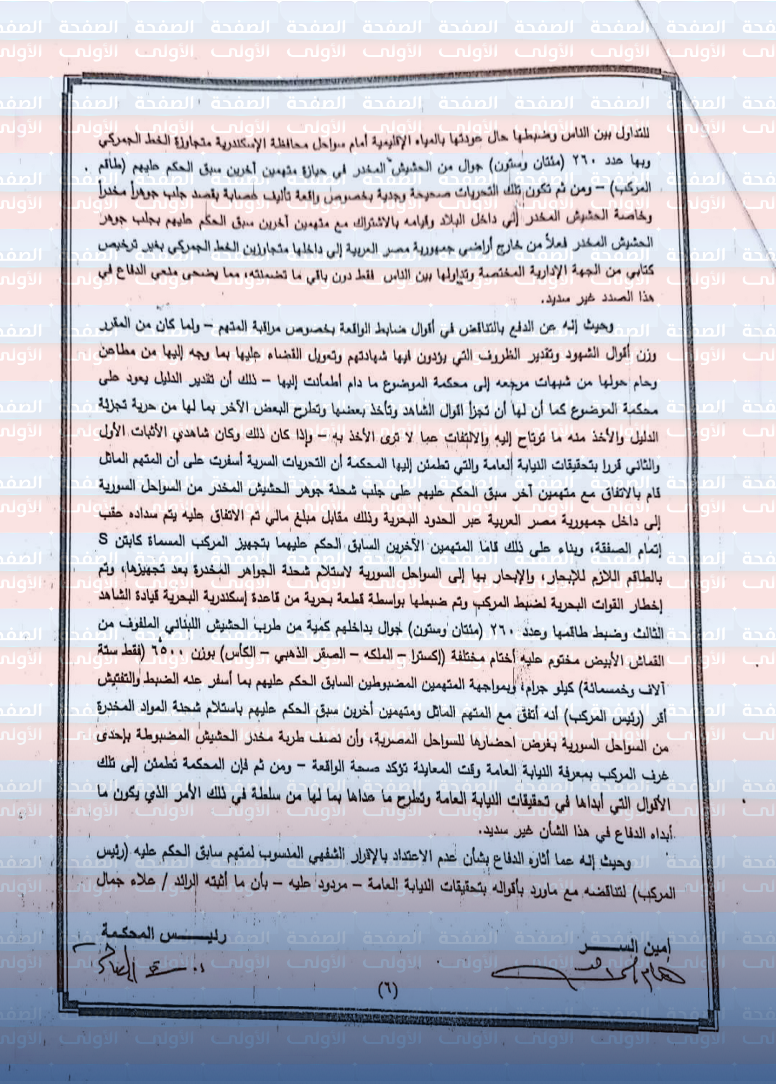 للتداول بين الناس وضبطها حال عودتها بالمياه الإقليمية أمام سواحل محافظة الإسكندرية متجاوزة الخط الجمركي
وبها عدد ٢٦٠ (مئتان وستون) جوال من الحشيش المخدر في حيازة متهمين آخرين سبق الحكم عليهم (طاقم
المركب) – ومن ثم تكون تلك التحريات صحيحة وجدية بخصوص واقعة تأليف عصابة بقصد جلب جوهراً مخدراً
وخاصة الحشيش المخدر إلي داخل البلاد وقيامه بالاشتراك مع متهمين آخرين سبق الحكم عليهم بجلب جوهر
الحشيش المخدر فعلاً من خارج أراضي جمهورية مصر العربية إلى داخلها متجاوزين الخط الجمركي بغير ترخيص
كتابي من الجهة الإدارية المختصة وتداولها بين الناس فقط دون باقي ما تضمنته، مما يضحى منعى الدفاع في
هذا الصدد غير سديد.
وحيث إنه عن الدفع بالتناقض في أقوال ضابط الواقعة بخصوص مراقبة المتهم – ولما كان من المقرر
وزن أقوال الشهود وتقدير الظروف التي يؤدون فيها شهادتهم وتعويل القضاء عليها بما وجه إليها من مطاعن
وحام حولها من شبهات مرجعه إلى محكمة الموضوع ما دام أطمأنت إليها – ذلك أن تقدير الدليل يعود على
محكمة الموضوع كما أن لها أن تجزأ أقوال الشاهد وتأخذ بعضها وتطرح البعض الآخر بما لها من حرية تجزئة
الدليل والأخذ منه ما ترتاح إليه والالتفات عما لا ترى الأخذ به – وإذا كان ذلك وكان شاهدي الأثبات الأول
والثاني قررا بتحقيقات النيابة العامة والتي تطمئن إليها المحكمة أن التحريات السرية أسفرت على أن المتهم الماثل
قام بالاتفاق مع متهمين آخر سبق الحكم عليهم على جلب شحنة جوهر الحشيش المخدر من السواحل السورية
إلى داخل جمهورية مصر العربية عبر الحدود البحرية وذلك مقابل مبلغ مالي تم الاتفاق عليه يتم سداده عقب
إتمام الصفقة، وبناء على ذلك قاما المتهمين الآخرين السابق الحكم عليهما بتجهيز المركب المسماة كابتن S
بالطاقم اللازم للإبحار، والإبحار بها إلى السواحل السورية لاستلام شحنة الجواهر المخدرة بعد تجهيزها، وتم
إخطار القوات البحرية لضبط المركب وتم ضبطها بواسطة قطعة بحرية من قاعدة إسكندرية البحرية قيادة الشاهد
الثالث وضبط طاقمها وعدد ٢٦٠ (مئتان وستون) جوال بداخلهم كمية من طرب الحشيش اللبناني الملفوف من
القماش الأبيض مختوم عليه أختام مختلفة (إكسترا – الملكه – الصقر الذهبي – الكأس) بوزن ٦٥٠٠ (فقط ستة
آلاف وخمسمائة) كيلو جرام، وبمواجهة المتهمين المضبوطين السابق الحكم عليهم بما أسفر عنه الضبط والتفتيش
أقر (رئيس المركب) أنه أتفق مع المتهم الماثل ومتهمين أخرين سبق الحكم عليهم باستلام شحنة المواد المخدرة
من السواحل السورية بغرض احضارها للسواحل المصرية، وأن نصف طربة مخدر الحشيش المضبوطة بإحدى
غرف المركب بمعرفة النيابة العامة وقت المعاينة تؤكد صحة الواقعة – ومن ثم فإن المحكمة تطمئن إلى تلك
الأقوال التي أبداها في تحقيقات النيابة العامة وتطرح ما عداها بما لها من سلطة في ذلك الأمر الذي يكون ما
أبداه الدفاع في هذا الشأن غير سديد.
وحيث إنه عما أثاره الدفاع بشأن عدم الاعتداد بالإقرار الشفهي المنسوب لمتهم سابق الحكم عليه (رئيس
المركب) لتناقضه مع ماورد بأقواله بتحقيقات النيابة العامة – مردود عليه – بأن ما أثبته الرائد / علاء جمال
أمين السـر
رئيـس المحكمة
(٦)
الصفحة الأولى